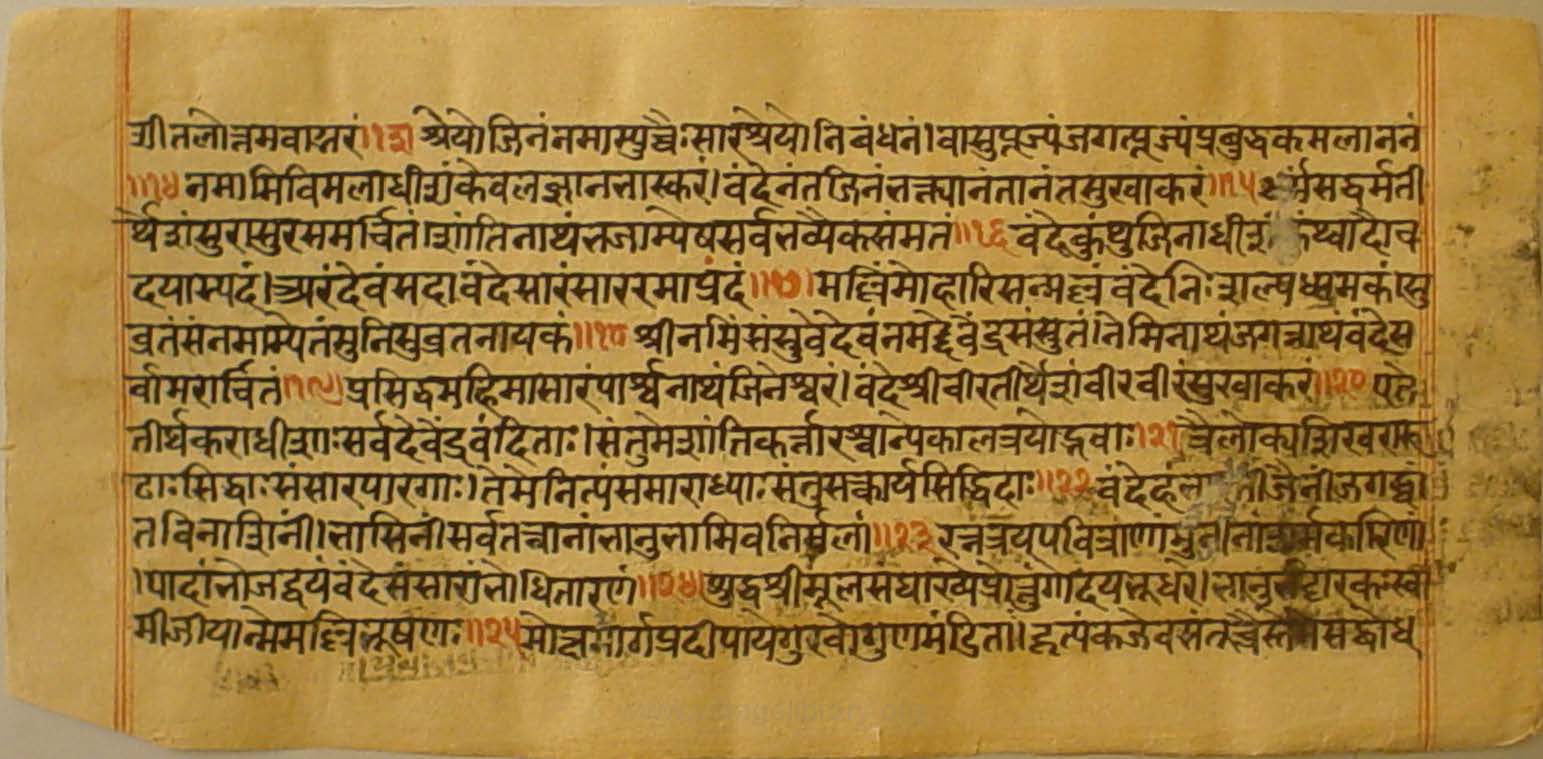 शीतलोत्तमवाग्भरं॥१३॥श्रेयोजिनंनमाम्युच्चैःसारश्रेयोनिबंधनं।वासुपूज्यंजगत्पूज्यंप्रबुद्धकमलाननं
॥१४नमामिविमलाधीशंकेवलज्ञानभास्करं।वंदेनंतजिनंभक्त्यानंतानंतसुखाकरं॥१५धर्मंसद्धर्मती
र्थेशंसुरासुरसमर्चितं।शांतिनाथंभजाम्येषसर्वभव्यैकसंमतं॥१६वंदेकुंथुजिनाधीशंकुंथ्वादौच
दयास्पदं।अरंदेवंमदावंदेसारंसाररमाप्रदं॥१७।मल्लिंमोहारिसन्मल्लंवंदेनिःशल्यधर्मकं।सु
व्रतंसंनमाम्येतंमुनिसुव्रतनायकं॥१८श्रीनमिंसंस्तुवेदेवंनमद्देवेंद्रसंस्तुतं।नेमिनाथंजगन्नाथंवंदेस
र्वामरार्चितं॥१९॥प्रसिद्धमहिमासारंपार्श्वनाथंजिनेश्वरं।वंदेश्रीवीरतीर्थेशंवीरवीरंसुखाकरं॥२०एते
तीर्थकराधीशाःसर्वदेवेंद्रवंदिताः।संतुमेशांतिकर्त्तारश्चान्येकालत्रयोद्भवाः॥२१त्रैलोक्यशिखरारू
ढाःसिद्धाःसंसारपारगाः।तेमेनित्यंसमाराध्याःसंतुसत्कार्यसिद्धिदाः॥२२वंदेहं जैनींजगद्ध्वां
तविनाशिनीं।भासिनींसर्वतत्त्वानांभानुभामिवनिर्मलां॥२३रत्नत्रयपवित्राणांमुनीनांशर्मकारिणं
।पादांभोजद्वयंवंदेसंसारांभोधितारणं॥२४।शुद्धश्रीमूलसंघाख्येप्रोत्तुंगोदयभूधरे।भानुर्भट्टारकःस्वा
मीजीयान्मेमल्लिभूषणः॥२५मोक्षमार्गप्रदीपायेगुरवोगुणमंडिताः।हृत्पंकजेवसंत्वुच्चैस्तेमेसद्बोध